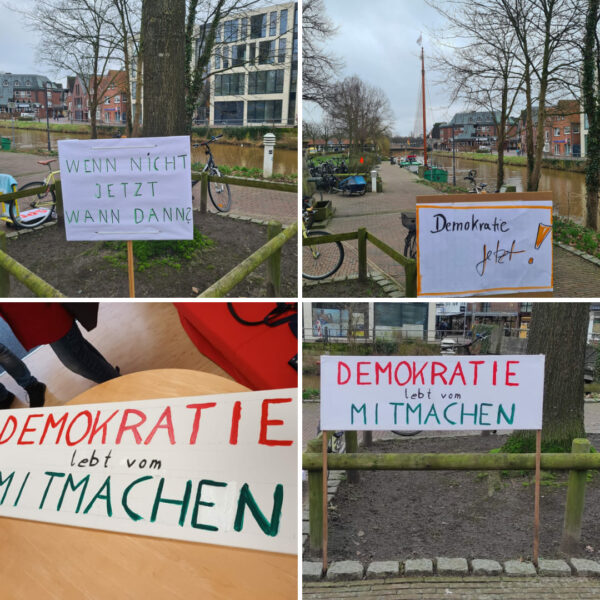 WENN NICHT
JETZT
WANN DANN?
Demokratie
jetzt!
DEMOKRATIE
lebt vom
MITMACHEN
DEMOKRATIE
lebt vom
MITMACHEN